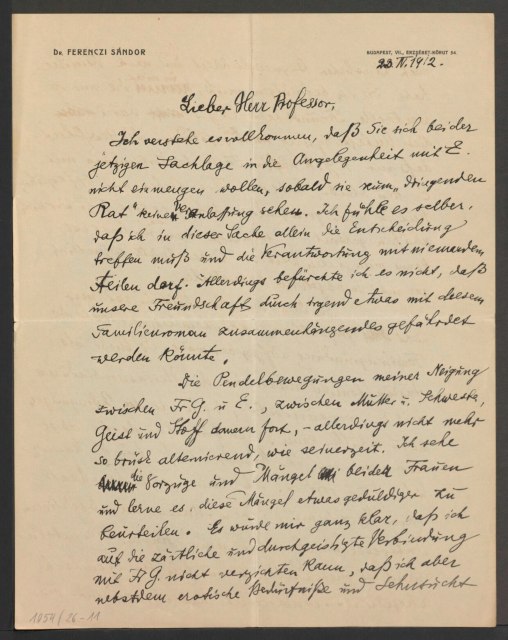 Dr. FERENCZI SÁNDOR
BUDAPEST, VII., ERZSÉBET-KÖRUT 54.
23. IV. 1912.
Lieber Herr Professor,
Ich verstehe es vollkommen, daß Sie sich bei der
jetzigen Sachlage in die Angelegenheit mit E.
nicht einmengen wollen, sobald sie zum „dringenden
Rat" keine Veranlassung sehen. Ich fühle es selber,
daß ich in dieser Sache allein die Entscheidung
treffen muß und die Verantwortung mit niemandem
teilen darf. Allerdings befürchte ich es nicht, daß
unsere Freundschaft durch irgend etwas mit diesem
Familienroman zusammenhängendes gefährdet
werden könnte.
Die Pendelbewegungen meiner Neigung
zwischen Fr G. u E., zwischen Mutter u. Schwester,
Geist und Stoff dauern fort, – allerdings nicht mehr
so brüsk alternierend, wie seinerzeit. Ich sehe
die Vorzüge und Mängel beider Frauen
und lerne es, diese Mängel etwas geduldiger zu
beurteilen. Es wurde mir ganz klar, daß ich
auf die zärtliche und durchgeistigte Verbindung
mit Fr G. nicht verzichten kann, daß ich aber
nebstdem erotische Bedürfniße und Sehnsucht
1054/26-11